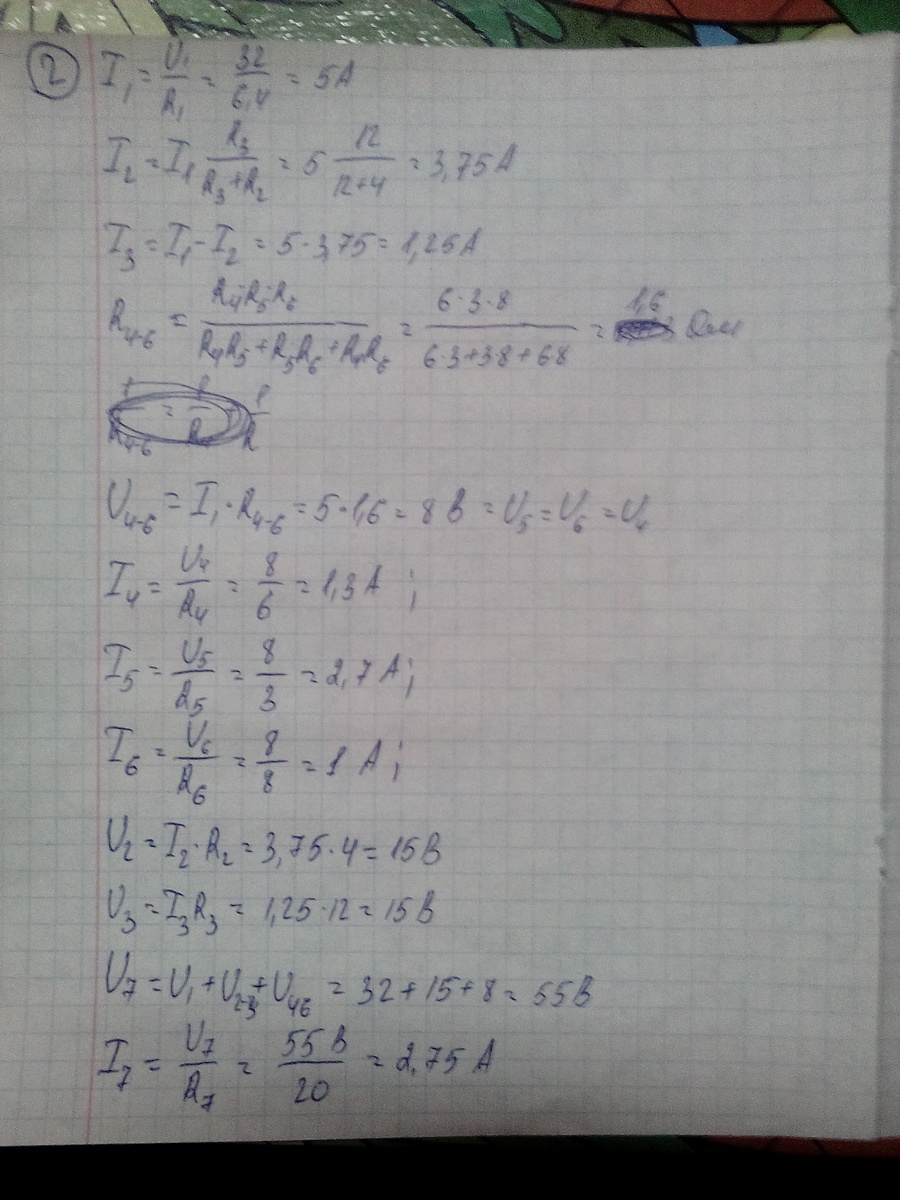 2 I₁ = U₁/R₁ = 32/6,4 = 5A
I₂ = I₁ R₃/(R₃+R₂) = 5 12/(12+4) = 3,75 A
I₃ = I₁ - I₂ = 5 - 3,75 = 1,25 A
R₄₋₆ = R₄·R₅·R₆/(R₄R₅+R₅R₆+R₄R₆) = 6·3·8/(6·3+3·8+6·8) = 1,6 Ом
U₄₋₆ = I₁·R₄₋₆ = 5·1,6 = 8 В = U₅ = U₆ = U₄
I₄ = U₄/R₄ = 8/6 = 1,3 A ;
I₅ = U₅/R₅ = 8/3 = 2,7 A ;
I₆ = U₆/R₆ = 8/8 = 1 A ;
U₂ = I₂·R₂ = 3,75·4 = 15 В
U₃ = I₃R₃ = 1,25·12 = 15 В
U₇ = U₁+U₂₋₃+U₄₆ = 32+15+8 = 55 В
I₇ = U₇/R₇ = 55 В/20 = 2,75 A